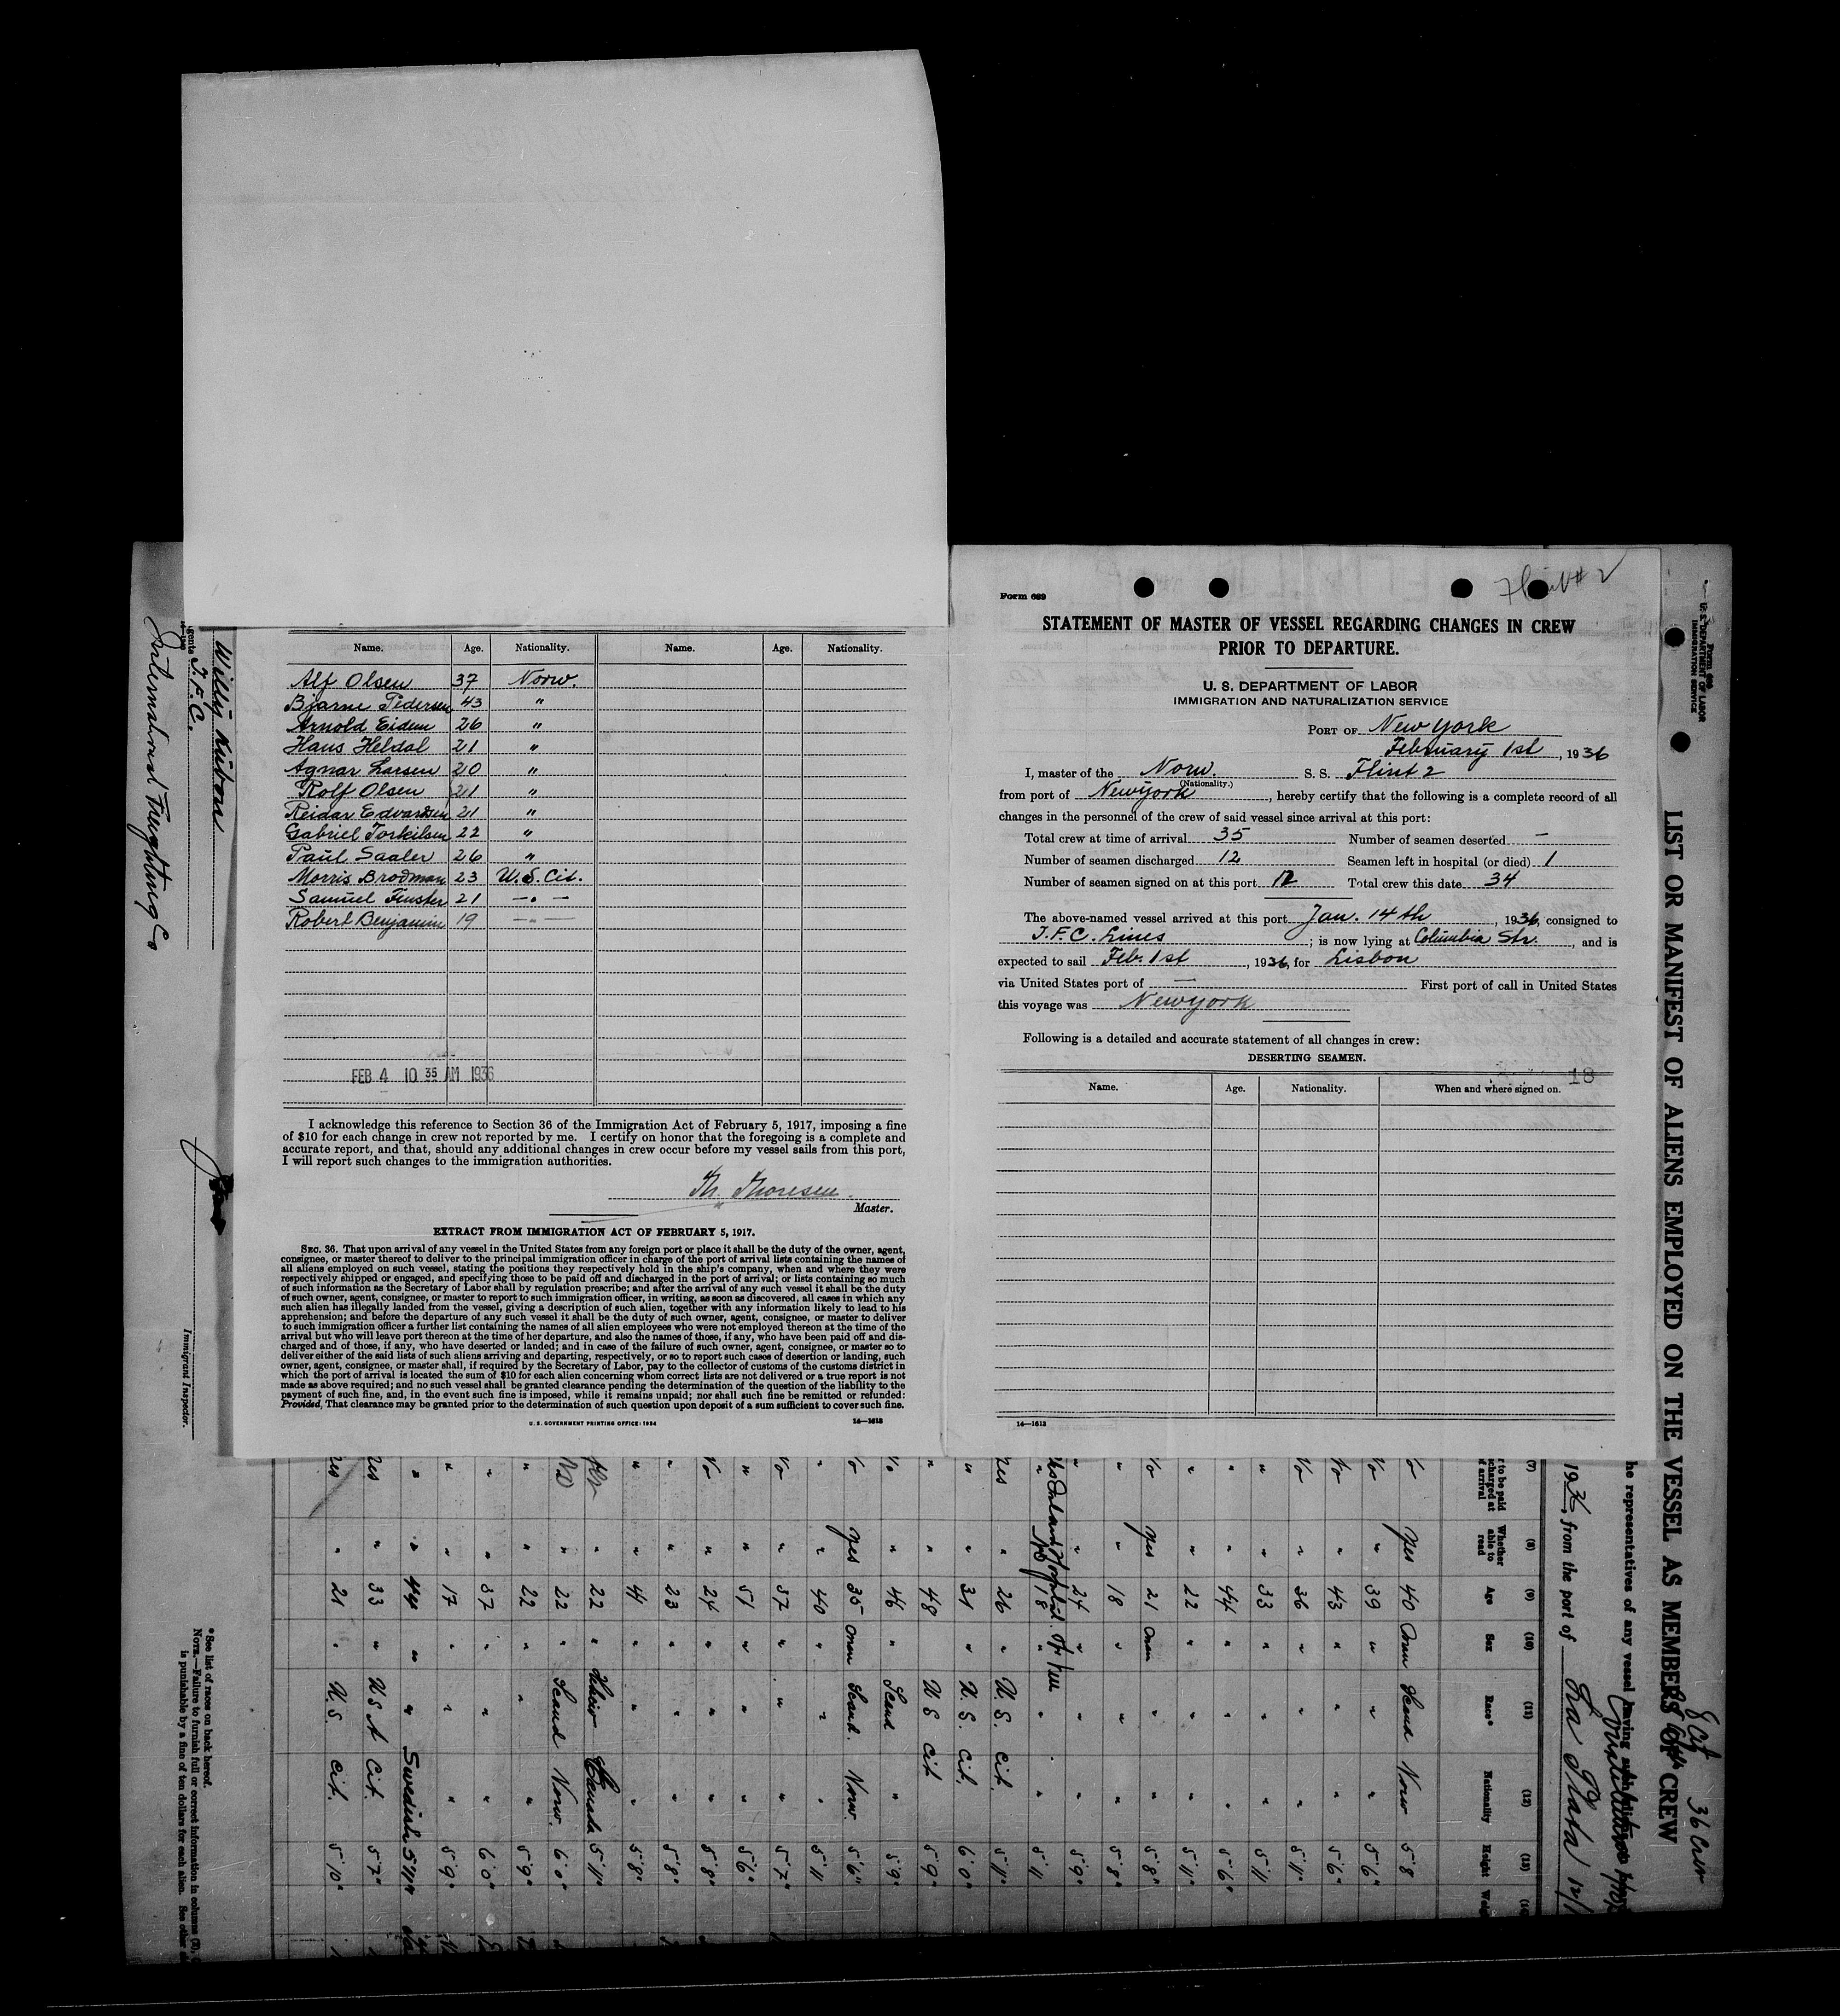 Name. Age. Nationality. Name. Age. Nationality.
Alf Olsen 37 Norw.
Bjarne Pedersen 43 "
Arnold Eidem 26 "
Hans Heldal 21 "
Agnar Larsen 20 "
Rolf Olsen 21 "
Reidar Edvardsen 21 "
Gabriel Torkilsen 22 "
Paul Saaler 26 "
Morris Brodman 23 U.S. Cit.
Samuel Finster 21 — " —
Robert Benjamin 19 — " —
FEB 4 10 35 AM 1936
I acknowledge this reference to Section 36 of the Immigration Act of February 5, 1917, imposing a fine
of $10 for each change in crew not reported by me. I certify on honor that the foregoing is a complete and
accurate report, and that, should any additional changes in crew occur before my vessel sails from this port,
I will report such changes to the immigration authorities.
Th. Thoresen.
Master.
EXTRACT FROM IMMIGRATION ACT OF FEBRUARY 5, 1917.
SEC. 36. That upon arrival of any vessel in the United States from any foreign port or place it shall be the duty of the owner, agent,
consignee, or master thereof to deliver to the principal immigration officer in charge of the port of arrival lists containing the names of
all aliens employed on such vessel, stating the positions they respectively hold in the ship's company, when and where they were
respectively shipped or engaged, and specifying those to be paid off and discharged in the port of arrival; or lists containing so much
of such information as the Secretary of Labor shall by regulation prescribe; and after the arrival of any such vessel it shall be the duty
of such owner, agent, consignee, or master to report to such immigration officer, in writing, as soon as discovered, all cases in which any
such alien has illegally landed from the vessel, giving a description of such alien, together with any information likely to lead to his
apprehension; and before the departure of any such vessel it shall be the duty of such owner, agent, consignee, or master to deliver
to such immigration officer a further list containing the names of all alien employees who were not employed thereon at the time of the
arrival but who will leave port thereon at the time of her departure, and also the names of those, if any, who have been paid off and dis-
charged and of those, if any, who have deserted or landed; and in case of the failure of such owner, agent, consignee, or master so to
deliver either of the said lists of such aliens arriving and departing, respectively, or so to report such cases of desertion or landing, such
owner, agent, consignee, or master shall, if required by the Secretary of Labor, pay to the collector of customs of the customs district in
which the port of arrival is located the sum of $10 for each alien concerning whom correct lists are not delivered or a true report is not
made as above required; and no such vessel shall be granted clearance pending the determination of the question of the liability to the
payment of such fine, and, in the event such fine is imposed, while it remains unpaid; nor shall such fine be remitted or refunded:
Provided, That clearance may be granted prior to the determination of such question upon deposit of a sum sufficient to cover such fine.
U. S. GOVERNMENT PRINTING OFFICE: 1934 14—1613
Flint # 2
Form 689
STATEMENT OF MASTER OF VESSEL REGARDING CHANGES IN CREW
PRIOR TO DEPARTURE.
U. S. DEPARTMENT OF LABOR
IMMIGRATION AND NATURALIZATION SERVICE
PORT OF New York
February 1st, 1936
I, master of the Norw. S. S. Flint 2
(Nationality.)
from port of Newyork, hereby certify that the following is a complete record of all
changes in the personnel of the crew of said vessel since arrival at this port:
Total crew at time of arrival 35 Number of seamen deserted —
Number of seamen discharged 12 Seamen left in hospital (or died) 1
Number of seamen signed on at this port 12 Total crew this date 34
The above-named vessel arrived at this port Jan. 14th, 1936, consigned to
I.F.C. Lines; is now lying at Columbia Str., and is
expected to sail Feb. 1st, 1936, for Lisbon
via United States port of — First port of call in United States
this voyage was Newyork
Following is a detailed and accurate statement of all changes in crew:
DESERTING SEAMEN.
18
Name. Age. Nationality. When and where signed on.
14—1613
LIST OR MANIFEST OF ALIENS EMPLOYED ON THE VESSEL AS MEMBERS OF CREW
36 Crew
U. S. DEPARTMENT OF LABOR
IMMIGRATION SERVICE
he representatives of any vessel having
1936, from the port of La Plata 12/
(7) (8) (9) (10) (11) (12) (13)
Whether able to read Age Sex Race* Nationality Height
yes 40 Scand Norw 5'8
" 39 " " " 5'6"
" 43 " " " 5'6
" 36 " " " 5'11"
" 33 " " " 5'11
" 44 " " " 5'6"
" 22 " " " 5'11"
yes 21 " " 5'8"
" 18 " " " 5'8"
" 24 " " " 5'9"
" 18 " " " 5'11
yes " 26 " U.S. Cit. 5'11"
" " 31 " U.S. Cit. 6'0"
" " 48 U S Cit 5'9"
" 46 " Scand " 5'9"
yes 35 Scand. Norw. 5'6"
" 40 " " " 5'11
" 37 " " " 5'7"
" 51 " " " 5'6"
" 24 " " " 5'8"
" 23 " " " 5'8"
" 41 " " " 5'8"
" 22 " Canada 5'11"
No " 22 " Scand Norw. 6'0"
" 22 " " " 5'9"
" 37 " " " 6'0"
" 17 " " " 5'9"
" 44 " " Swedish 5'11"
" 33 " U S A Cit 5'7"
" 21 " U.S. Cit. 5'10"
*See list of races on back hereof.
NOTE.—Failure to furnish full or correct information in columns (3),
is punishable by a fine of ten dollars for each alien. See other
Immigrant Inspector.
Willy Kuborn
I.F.C.
International Freighting Co